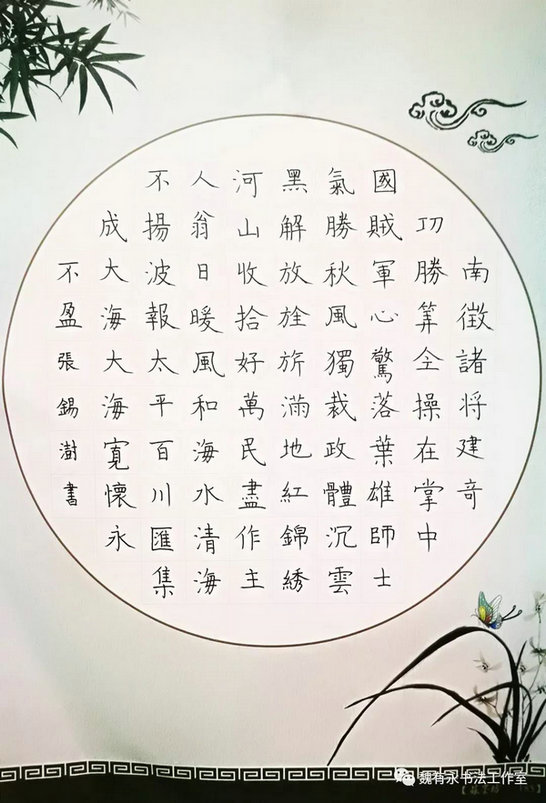 南徵諸将建竒
功勝筭仝操在掌中
國賊軍心驚落葉雄師士
氣勝秋風獨裁政體沉雲
黑解放旌旂滿地紅錦綉
河山收拾好萬民盡作主
人翁日暖風和海水清海
不揚波報太平百川匯集
成大海大海寬懷永
不盈張錫澍書
魏有永书法工作室